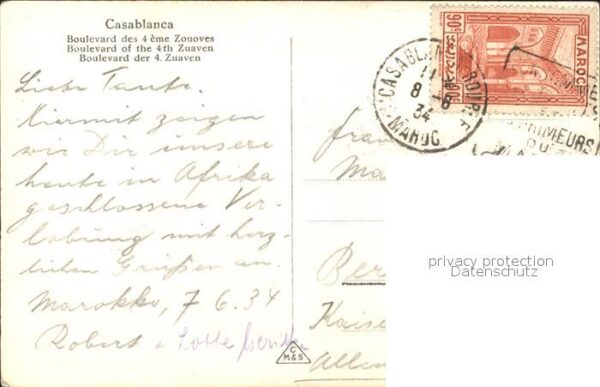 Casablanca
Boulevard des 4 ème Zouoves
Boulevard of the 4th Zuaven
Boulevard der 4. Zuaven
Liebe Tante.
Hiermit zeigen
wir Dir unsere
heute in Afrika
geschlossene Ver-
lobung mit herz-
lichen Grüßen an.
Marokko, 7 6.34
Robert + Lotte
C
M&S
90c
MAROC
CASABLANCA BOURSE
8-6
34
MAROC
PRIMEURS
privacy protection
Datenschutz